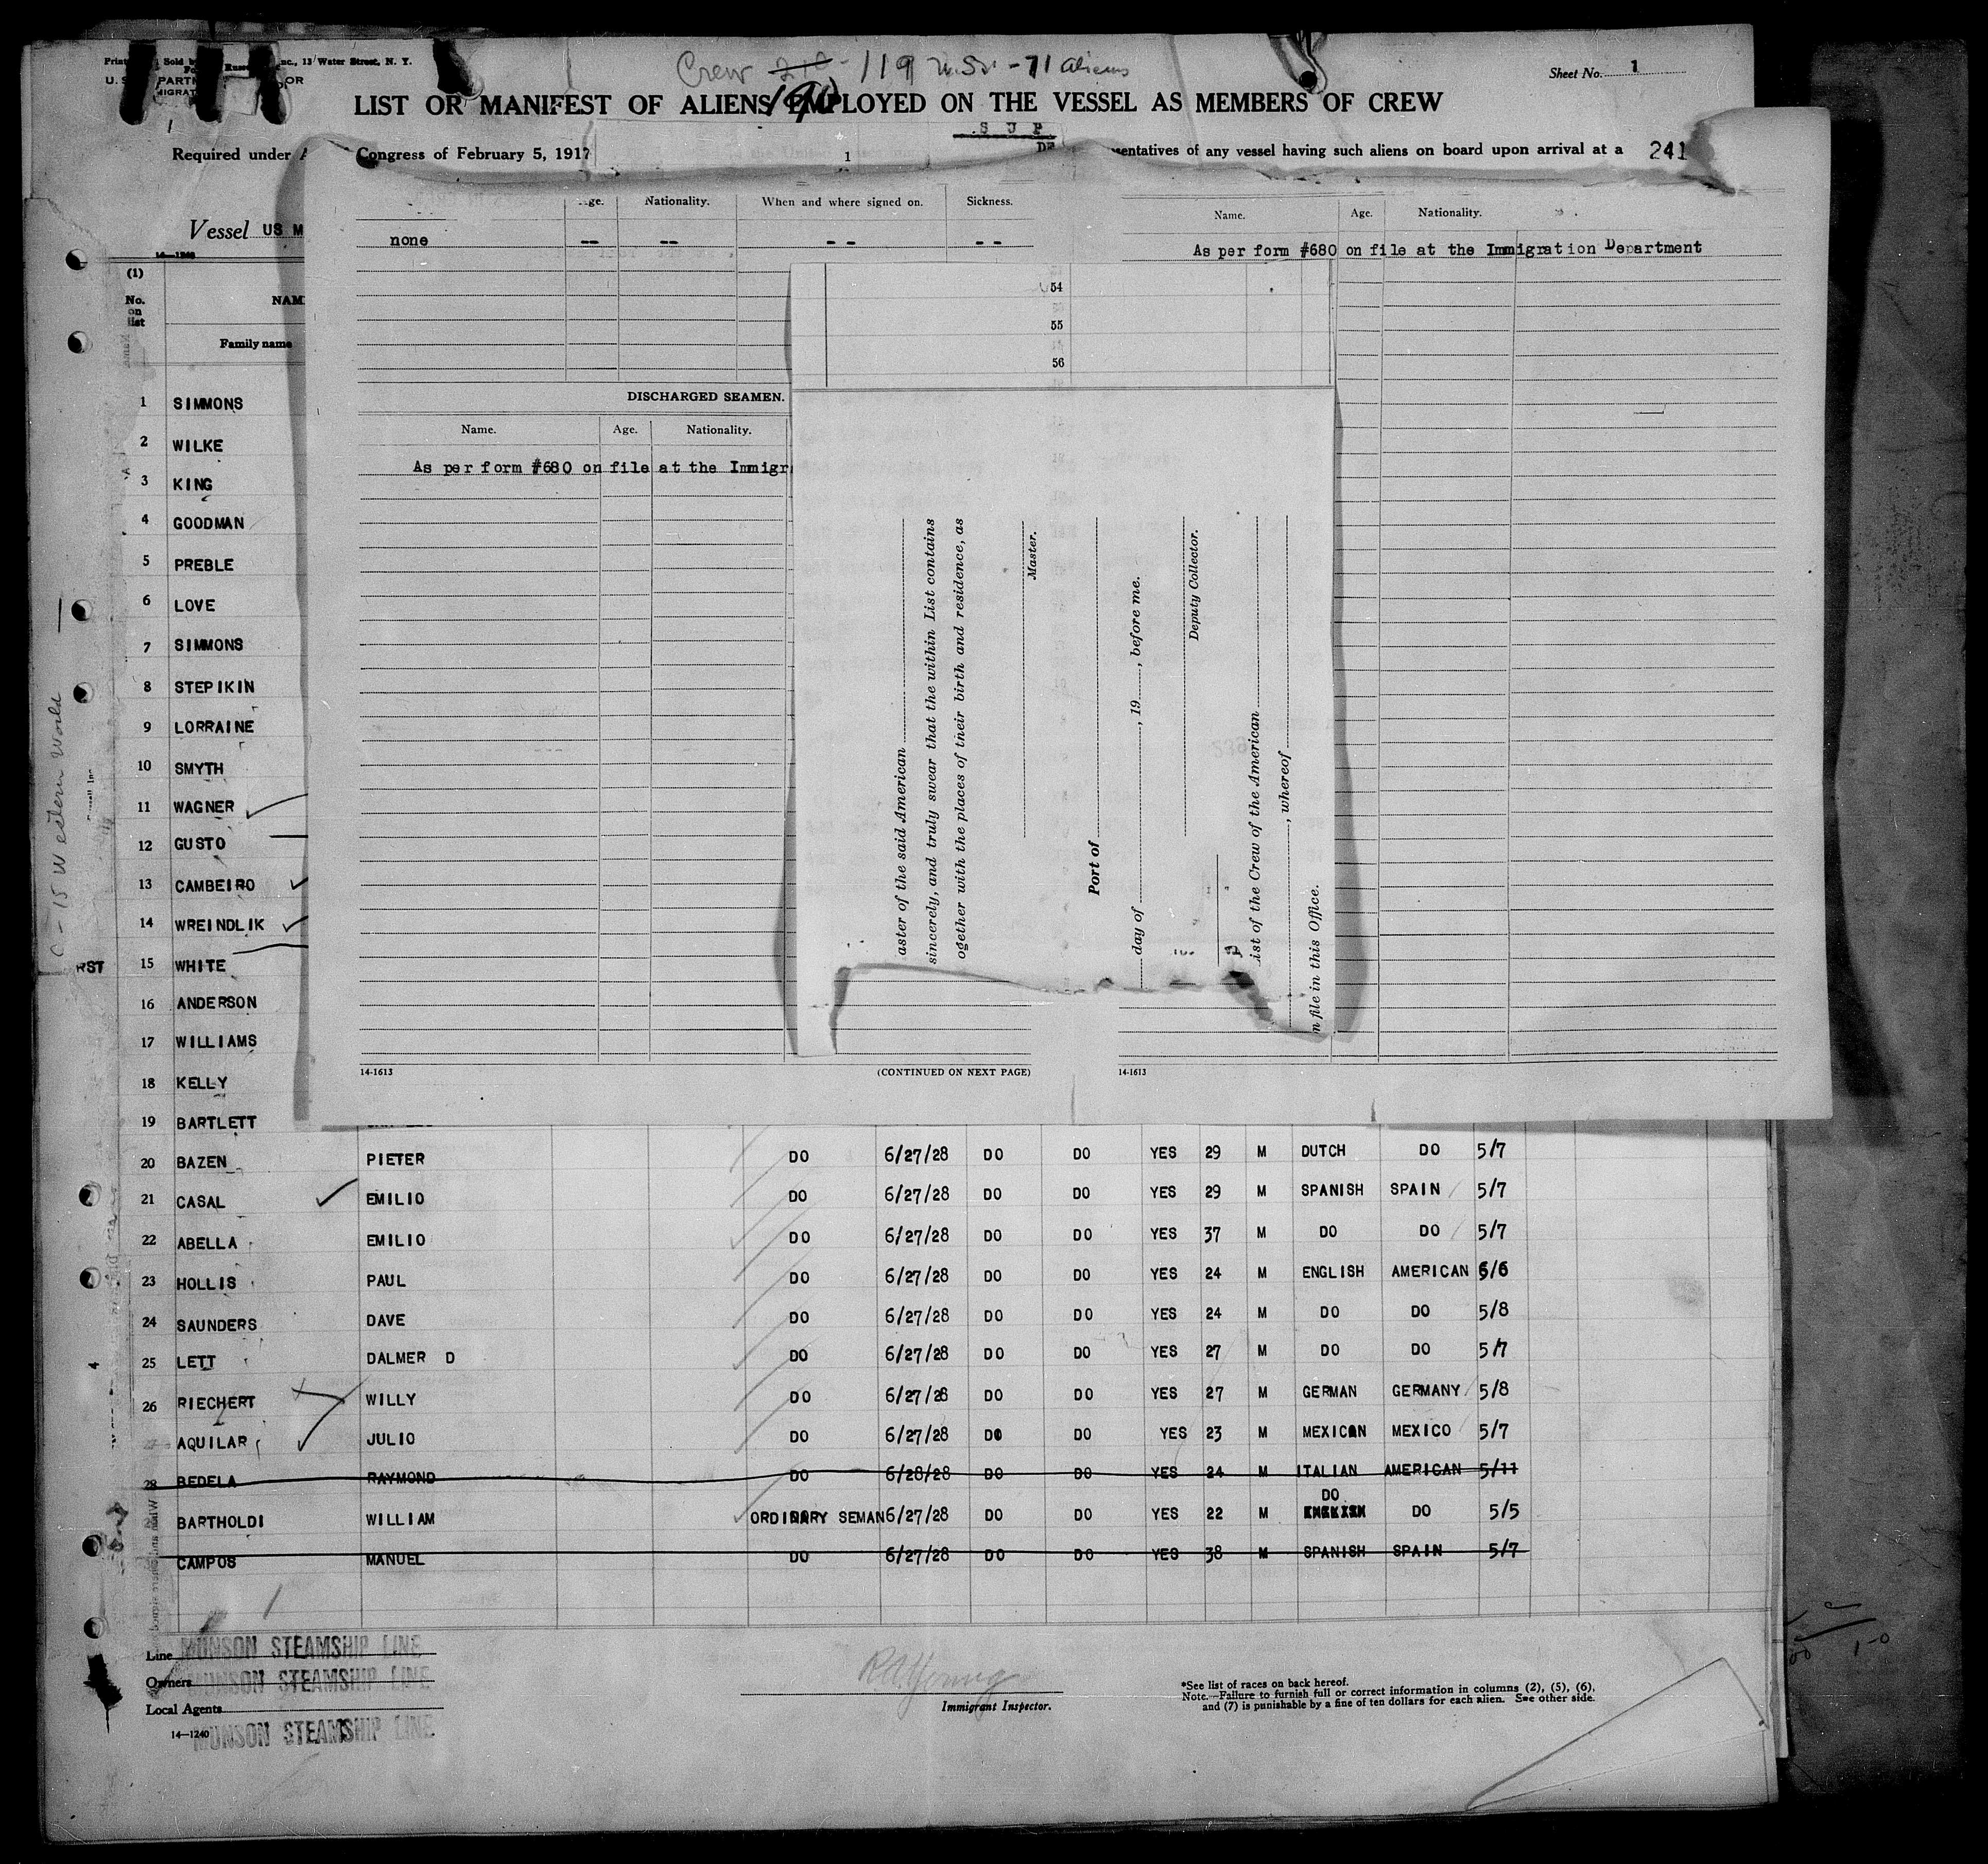 Sold by
Inc., 13 Water Street, N. Y.
Crew 119 U.S. - 71 aliens
Sheet No. 1
LIST OR MANIFEST OF ALIENS EMPLOYED ON THE VESSEL AS MEMBERS OF CREW
190
S U P
Required under A
Congress of February 5, 1917
1
sentatives of any vessel having such aliens on board upon arrival at a 241
Vessel US M
14—1240
(1)
No. on list
NAM
Family name
ge. Nationality. When and where signed on. Sickness.
none -- -- -- --
Name. Age. Nationality.
As per form #680 on file at the Immigration Department
54
55
56
DISCHARGED SEAMEN.
Name. Age. Nationality.
As per form #680 on file at the Immigr
aster of the said American
sincerely, and truly swear that the within List contains
ogether with the places of their birth and residence, as
Master.
Port of
day of , 19 , before me.
Deputy Collector.
ist of the Crew of the American
, whereof
n file in this Office.
14-1613 (CONTINUED ON NEXT PAGE)
14-1613
C-15 Western World
RST
1 SIMMONS
2 WILKE
3 KING
4 GOODMAN
5 PREBLE
6 LOVE
7 SIMMONS
8 STEPIKIN
9 LORRAINE
10 SMYTH
11 WAGNER
12 GUSTO
13 CAMBEIRO
14 WREINDLIK
15 WHITE
16 ANDERSON
17 WILLIAMS
18 KELLY
19 BARTLETT
20 BAZEN PIETER DO 6/27/28 DO DO YES 29 M DUTCH DO 5/7
21 CASAL EMILIO DO 6/27/28 DO DO YES 29 M SPANISH SPAIN 5/7
22 ABELLA EMILIO DO 6/27/28 DO DO YES 37 M DO DO 5/7
23 HOLLIS PAUL DO 6/27/28 DO DO YES 24 M ENGLISH AMERICAN 6/6
24 SAUNDERS DAVE DO 6/27/28 DO DO YES 24 M DO DO 5/8
25 LETT DALMER D DO 6/27/28 DO DO YES 27 M DO DO 5/7
26 RIECHERT WILLY DO 6/27/28 DO DO YES 27 M GERMAN GERMANY 5/8
27 AQUILAR JULIO DO 6/27/28 DO DO YES 23 M MEXICAN MEXICO 5/7
28 BEDELA RAYMOND DO 6/28/28 DO DO YES 24 M ITALIAN AMERICAN 5/11
BARTHOLDI WILLIAM ORDINARY SEMAN 6/27/28 DO DO YES 22 M DO ENGLISH DO 5/5
CAMPOS MANUEL DO 6/27/28 DO DO YES 38 M SPANISH SPAIN 5/7
Line MUNSON STEAMSHIP LINE
Owners MUNSON STEAMSHIP LINE
Local Agents
14—1240 MUNSON STEAMSHIP LINE
Immigrant Inspector.
*See list of races on back hereof.
Note.—Failure to furnish full or correct information in columns (2), (5), (6),
and (7) is punishable by a fine of ten dollars for each alien. See other side.